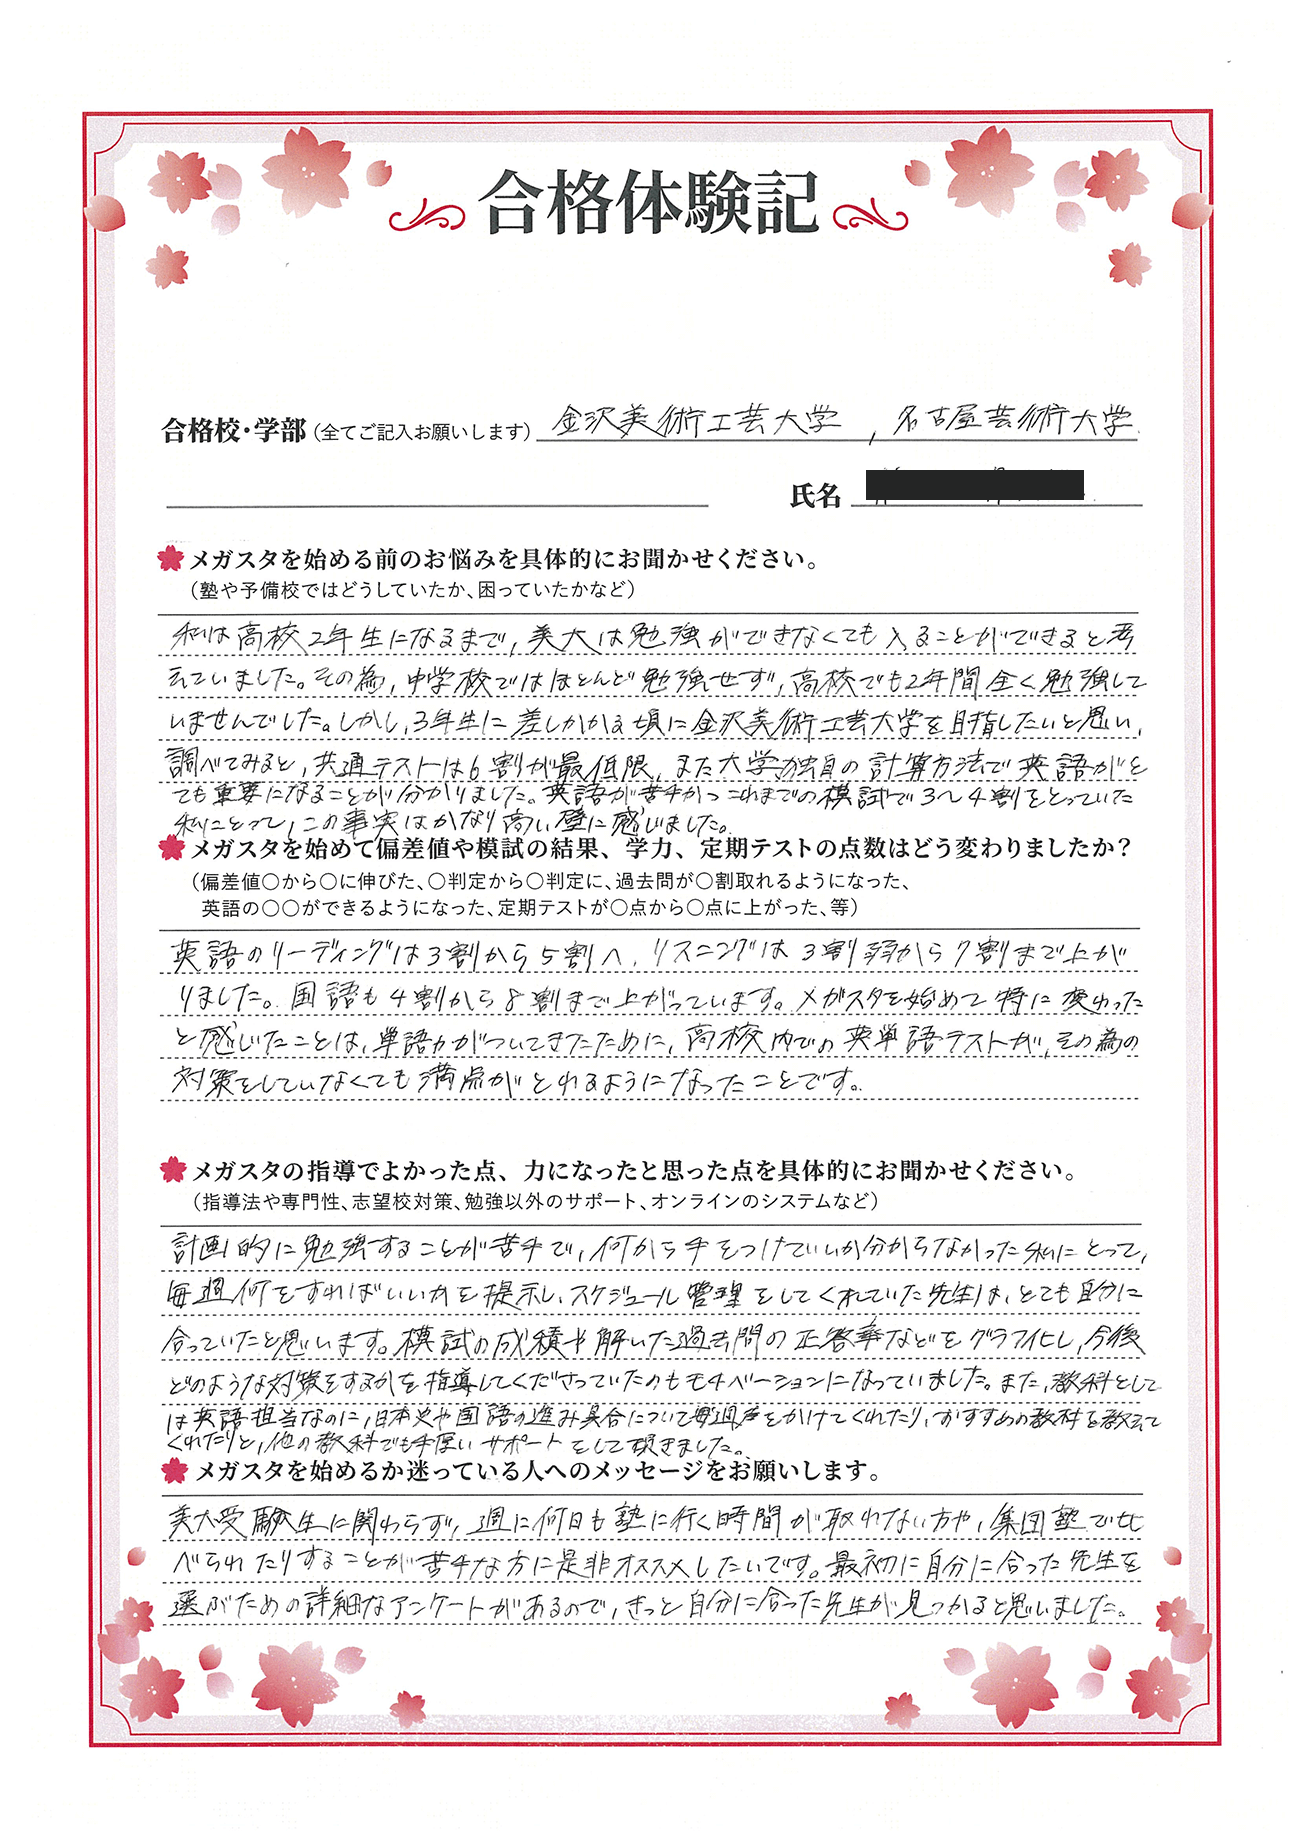 合格体験記
合格校・学部(全てご記入お願いします) 金沢美術工芸大学 , 名古屋芸術大学
氏名
メガスタを始める前のお悩みを具体的にお聞かせください。
(塾や予備校ではどうしていたか、困っていたかなど)
私は高校2年生になるまで, 美大は勉強ができなくても入ることができると考
えていました。その為, 中学校ではほとんど勉強せず, 高校でも2年間全く勉強して
いませんでした。しかし, 3年生に差しかかる頃に金沢美術工芸大学を目指したいと思い,
調べてみると, 共通テストは6割が最低限, また大学独自の計算方法で英語がと
ても重要になることが分かりました。英語が苦手かつこれまでの模試で3〜4割をとっていた
私にとって, この事実はかなり高い壁に感じました。
メガスタを始めて偏差値や模試の結果、学力、定期テストの点数はどう変わりましたか?
(偏差値〇から〇に伸びた、〇判定から〇判定に、過去問が〇割取れるようになった、
英語の〇〇ができるようになった、定期テストが〇点から〇点に上がった、等)
英語のリーディングは3割から5割へ, リスニングは3割弱から7割まで上が
りました。国語も4割から8割まで上がっています。メガスタを始めて特に変わった
と感じたことは, 単語力がついてきたために, 高校内での英単語テストが, その為の
対策をしていなくても満点がとれるようになったことです。
メガスタの指導でよかった点、力になったと思った点を具体的にお聞かせください。
(指導法や専門性、志望校対策、勉強以外のサポート、オンラインのシステムなど)
計画的に勉強することが苦手で, 何から手をつけていいか分からなかった私にとって,
毎週何をすればいいかを提示し, スケジュール管理をしてくれていた先生は, とても自分に
合っていたと思います。模試の成績や解いた過去問の正答率などをグラフ化し, 今後
どのような対策をするかを指導してくださっていたのもモチベーションになっていました。また, 教科として
は英語担当なのに, 日本史や国語の進み具合について毎週声をかけてくれたり, おすすめの教材を教えて
くれたりと, 他の教科でも手厚いサポートをして頂きました。
メガスタを始めるか迷っている人へのメッセージをお願いします。
美大受験生に関わらず, 週に何日も塾に行く時間が取れない方や, 集団塾で比
べられたりすることが苦手な方に是非オススメしたいです。最初に自分に合った先生を
選ぶための詳細なアンケートがあるので, きっと自分に合った先生が見つかると思いました。